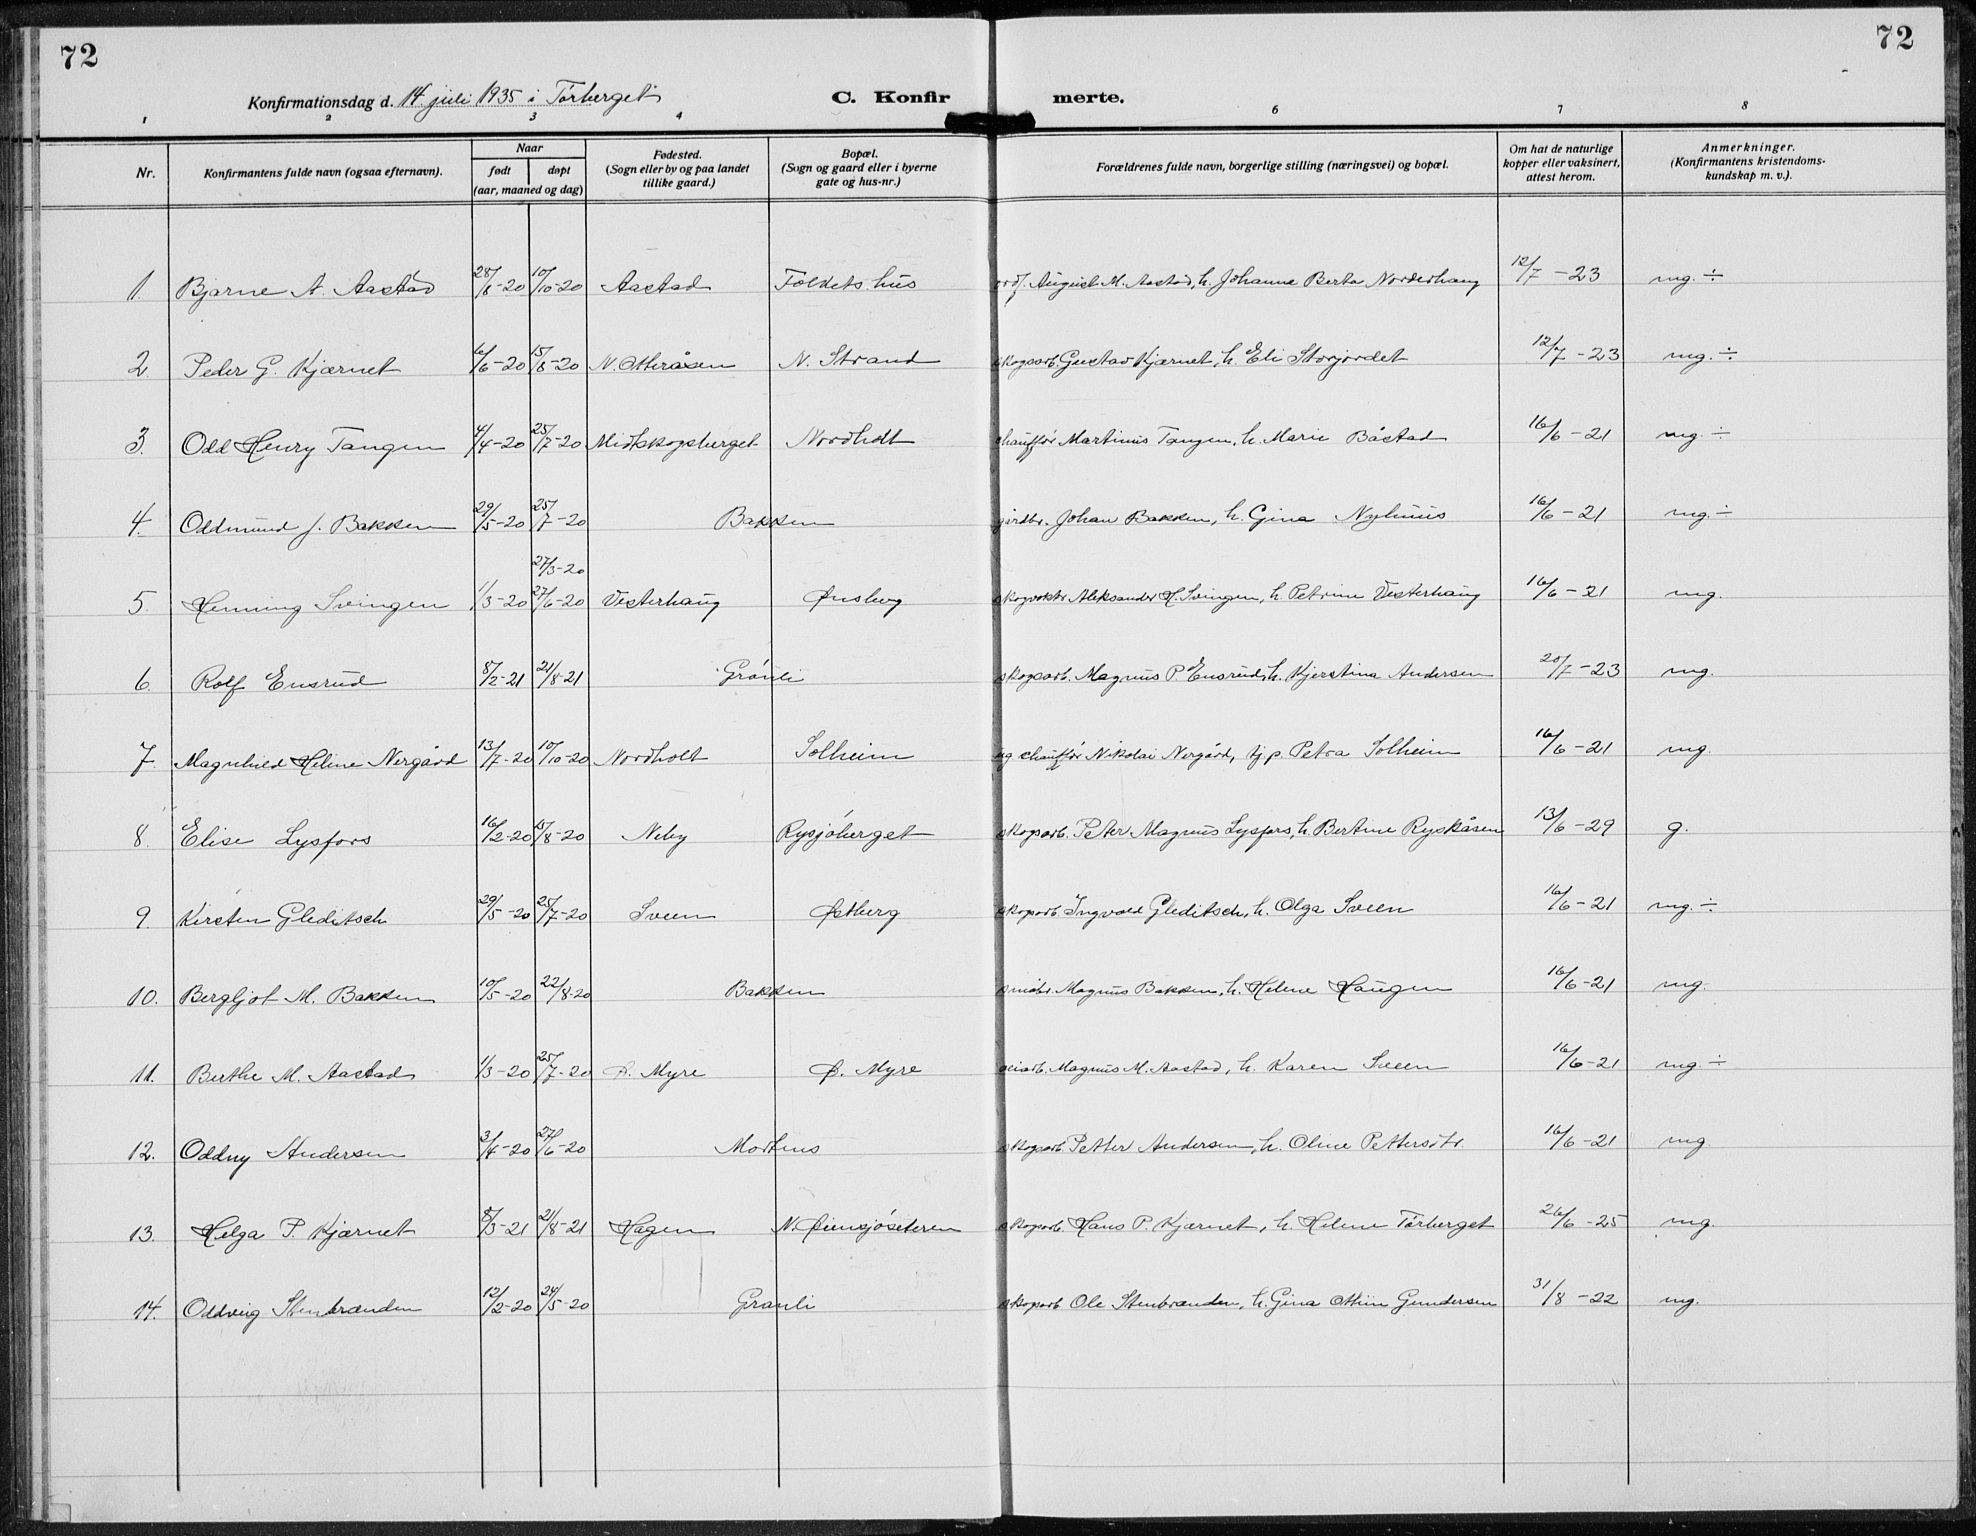 72
72
Konfirmationsdag d. 14. juli 1935 i Tørberget
C. Konfirmerte.
1 2 3 4 6 7 8
Nr. Konfirmantens fulde navn (ogsaa efternavn). Naar født døpt (aar, maaned og dag) Fødested. (Sogn eller by og paa landet tillike gaard.) Bopæl. (Sogn og gaard eller i byerne gate og hus-nr.) Forældrenes fulde navn, borgerlige stilling (næringsvei) og bopæl. Om hat de naturlige kopper eller vaksinert, attest herom. Anmerkninger. (Konfirmantens kristendomskundskap m. v.).
1. Bjarne A. Aastad 28/8-20 10/10-20 Aastad Folkets hus August M. Aastad, h. Johanne Berta Norderhaug 12/7-23 mg. ÷
2. Peder G. Kjærnet 6/6-20 15/8-20 N. Otteråsen N. Strand skogsarb. Gustav Kjærnet, h. Eli Storjordet 12/7-23 mg. ÷
3. Odd Henry Tangen 4/4-20 25/7-20 Midtskogsberget Nordholt chauffør Martinus Tangen, h. Marie Båstad 16/6-21 mg. ÷
4. Oddmund J. Bakken 29/5-20 25/7-20 Bakken jordbr. Johan Bakken, h. Gina Nyhuus 16/6-21 mg. ÷
27/3-20
5. Henning Svingen 1/3-20 27/6-20 Vesterhaug Ønsberg Aleksander H. Svingen, h. Petrine Vesterhaug 16/6-21 mg.
6. Rolf Ensrud 8/2-21 21/8-21 Grönli skogsarb. Magnus P. Ensrud, h. Kjerstina Andersen 20/7-23 mg.
7. Magnhild Heline Nergård 13/7-20 10/10-20 Nordholt Solheim ug chauffør Nikolai Nergård, tj.p. Petra Solheim 16/6-21 mg.
8. Elise Lysfors 16/2-20 15/8-20 Neby Rysjöberget skogsarb. Peter Magnus Lysfors, h. Bertine Ryskåsen 13/6-29 g.
9. Kirsten Gleditsch 29/5-20 25/7-20 Sveen Østberg skogsarb. Ingvald Gleditsch, h. Olga Sveen 16/6-21 mg. ÷
10. Bergljot M. Bakken 10/5-20 22/8-20 Bakken småbr. Magnus Bakken, h. Helene Haugen 16/6-21 mg.
11. Berthe M. Aastad 1/3-20 25/7-20 Ø. Myre Ø. Myre veiarb. Magnus M. Aastad, h. Karen Sveen 16/6-21 mg. ÷
12. Oddny Andersen 3/4-20 27/6-20 Mortens skogsarb. Petter Andersen, h. Oline Pettersdtr. 16/6-21 mg.
13. Helga P. Kjærnet 8/3-21 21/8-21 Hagen N. skogsarb. Hans P. Kjærnet, h. Helene Tørberget 26/6-25 mg.
14. Oddveig Stenbrænden 12/2-20 24/5-20 Granli skogsarb Ole Stenbrænden, h. Gina Gundersen 31/8-22 mg.